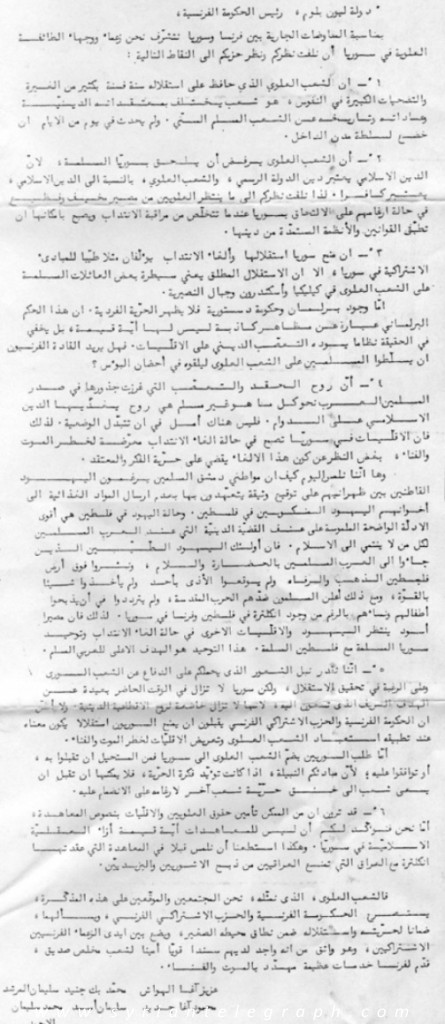 دولة ليون بلوم، رئيس الحكومة الفرنسية،
بمناسبة المفاوضات الجارية بين فرنسا وسوريا نتشرف نحن زعماء ووجهاء الطائفة
العلوية في سوريا أن نلفت نظركم ونظر حزبكم الى النقاط التالية :
١ـ ان الشعب العلوي الذي حافظ على استقلاله سنة فسنة بكثير من الغيرة
والتضحيات الكبيرة في النفوس، هو شعب يختلف بمعتقداته الدينية
وعاداته وتاريخه عن الشعب المسلم السني. ولم يحدث في يوم من الايام ان
خضع لسلطة مدن الداخل.
٢ـ أن الشعب العلوي يرفض أن يلحق بسوريا المسلمة، لأن
الدين الاسلامي يعتبر دين الدولة الرسمي، والشعب العلوي، بالنسبة الى الدين الاسلامي،
يعتبر كافرا. لذا نلفت نظركم الى ما ينتظر العلويين من مصير مخيف وفظيع
في حالة ارغامهم على الالتحاق بسوريا عندما تتخلص من مراقبة الانتداب ويصبح بامكانها ان
تطبق القوانين والأنظمة المستمدة من دينها.
٣ـ ان منح سوريا استقلالها والغاء الانتداب يؤلفان مثلا طيبا للمبادئ
الاشتراكية في سوريا، الا ان الاستقلال المطلق يعني سيطرة بعض العائلات المسلمة
على الشعب العلوي في كيليكيا واسكندرون وجبال النصيرية.
أما وجود برلمان وحكومة دستورية فلا يظهر الحرية الفردية. ان هذا الحكم
البرلماني عبارة عن مظاهر كاذبة ليس لها أية قيمة، بل يخفي
في الحقيقة نظاما يسوده التعصب الديني على الأقليات. فهل يريد القادة الفرنسيون
ان يسلطوا المسلمين على الشعب العلوي ليلقوه في أحضان البؤس؟
٤ـ أن روح الحقد والتعصب التي غرزت جذورها في صدر
المسلمين العرب نحو كل ما هو غير مسلم هي روح يغذيها الدين
الاسلامي على الدوام. فليس هناك أمل في ان تتبدل الوضعية. لذلك
فان الأقليات في سوريا تصبح في حالة الغاء الانتداب معرضة لخطر الموت
والفناء، بغض النظر عن كون هذا الالغاء يقضي على حرية الفكر والمعتقد.
وها اننا نلمس اليوم كيف ان مواطني دمشق المسلمين يرغمون اليهود
القاطنين بين ظهرانيهم على توقيع وثيقة يتعهدون بها بعدم ارسال المواد الغذائية الى
أخوانهم اليهود المنكوبين في فلسطين. وحالة اليهود في فلسطين هي أقوى
الادلة الواضحة الملموسة على عنف القضية الدينية التي عند العرب المسلمين
لكل من لا ينتمي الى الاسلام. فان أولئك اليهود الطيبين الذين
جاءوا الى العرب المسلمين بالحضارة والسلام، ونثروا فوق أرض
فلسطين الذهب والرفاه ولم يوقعوا الأذى بأحد ولم يأخذوا شيئا
بالقوة، ومع ذلك أعلن المسلمون ضدهم الحرب المقدسة، ولم يترددوا في أن يذبحوا
أطفالهم ونساءهم بالرغم من وجود انكلترة في فلسطين وفرنسا في سوريا. لذلك فان مصيرا
أسود ينتظر اليهود والاقليات الاخرى في حالة الغاء الانتداب وتوحيد
سوريا المسلمة مع فلسطين المسلمة. هذا التوحيد هو الهدف الاعلى للعربي المسلم.
٥ـ اننا نقدر نبل الشعور الذي يحملكم على الدفاع عن الشعب السوري
وعلى الرغبة في تحقيق الاستقلال، ولكن سوريا لا تزال في الوقت الحاضر بعيدة عن
الهدف الشريف الذي تسعون اليه، لانها لا تزال خاضعة لروح الاقطاعية الدينية.
ان الحكومة الفرنسية والحزب الاشتراكي الفرنسي يقبلون ان يمنح السوريون استقلالا يكون معناه
عند تطبيقه استعباد الشعب العلوي وتعريض الأقليات لخطر الموت والفناء.
أما طلب السوريين بضم الشعب العلوي الى سوريا فمن المستحيل ان تقبلوا به،
أو توافقوا عليه، لأن مبادئكم النبيلة، اذا كانت تؤيد فكرة الحرية، فلا يمكنها ان تقبل ان
يسعى شعب الى خنق حرية شعب آخر لارغامه على الانضمام عليه.
٦ـ قد ترون ان من الممكن تأمين حقوق العلويين والاقليات بنصوص المعاهدة،
أما نحن فنؤكد لكم أن ليس للمعاهدات أية قيمة ازاء العقلية
الاسلامية في سوريا. وهكذا استطعنا أن نلمس قبلا في المعاهدة التي عقدتها
انكلترة مع العراق التي تمنع العراقيين من ذبح الاشوريين واليزيديين.
فالشعب العلوي، الذي نمثله، نحن المجتمعين والموقعين على هذه المذكرة،
يستصرخ الحكومة الفرنسية والحزب الاشتراكي الفرنسي، ويسألهما،
ضمانا لحريته واستقلاله ضمن نطاق محيطه الصغير، ويضع بين ايدي الزعماء الفرنسيين
الاشتراكيين، وهو واثق من انه واجد لديهم سندا قويا أمينا لشعب مخلص صديق،
قدم لفرنسا خدمات عظيمة مهدد بالموت والفناء.
عزيز آغا الهواش محمد بك جنيد سليمان المرشد
محمود آغا جديد سليمان أسد محمد سليمان
الاحمد
www.syriantelegraph.com